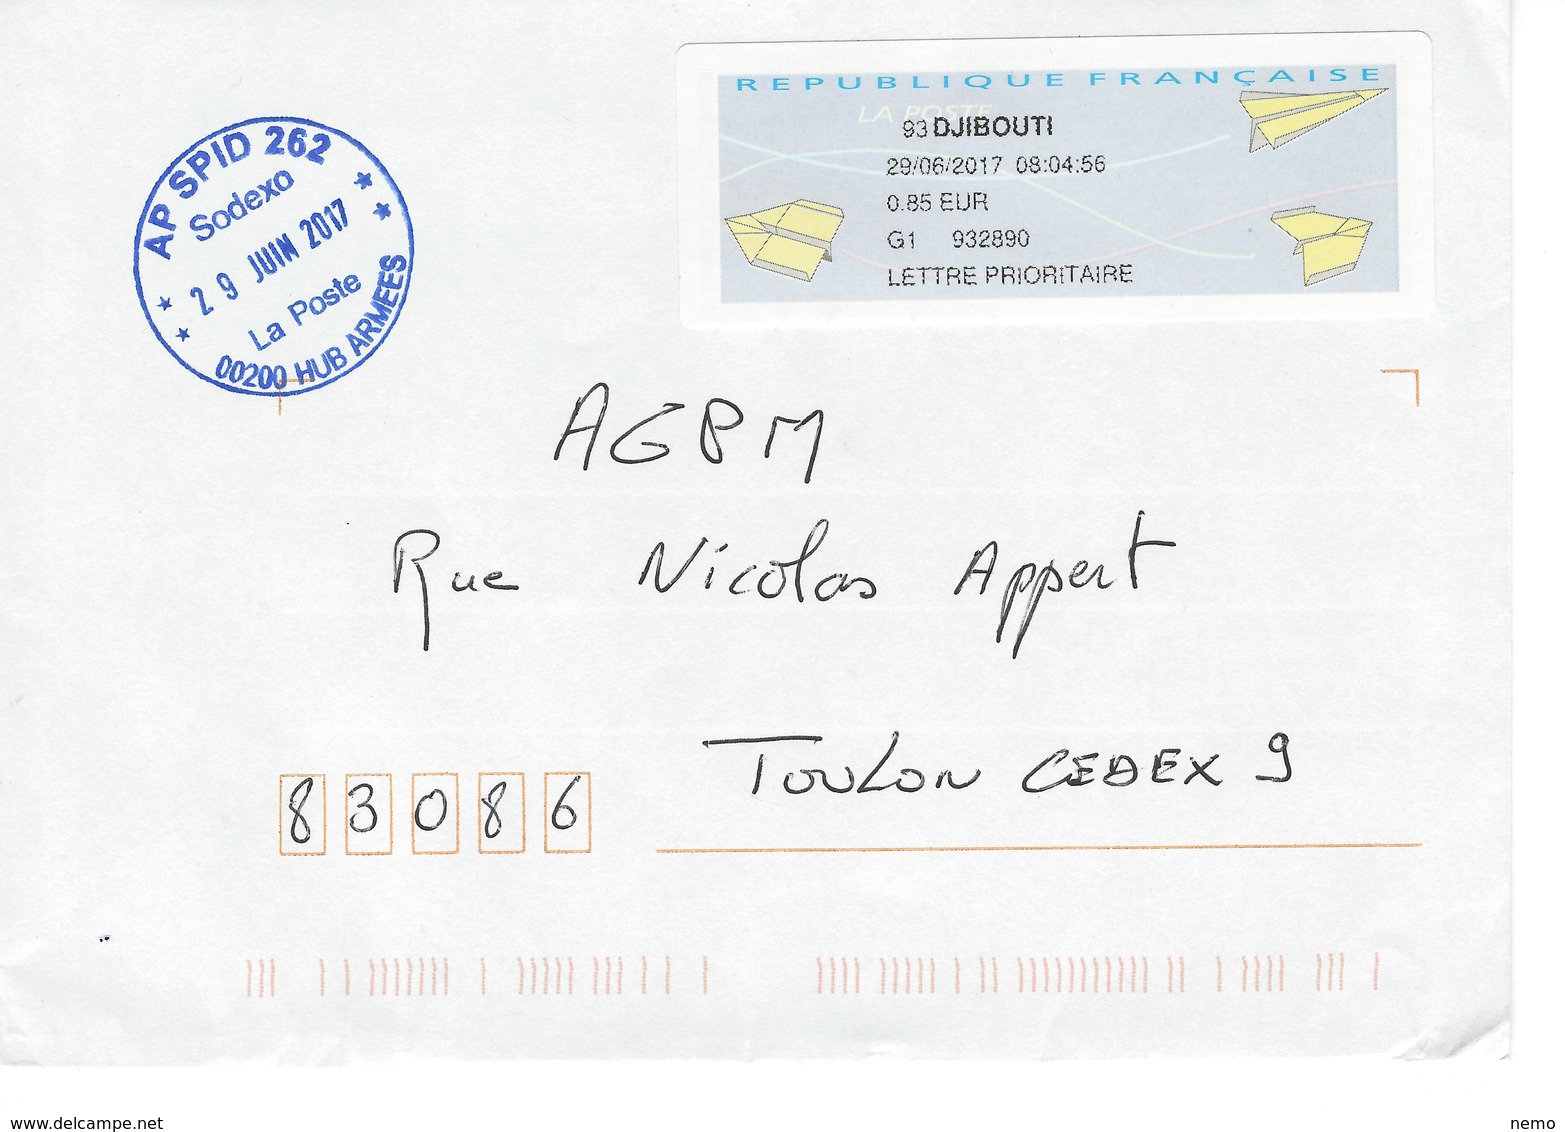 REPUBLIQUE FRANÇAISE
LA POSTE
93 DJIBOUTI
29/06/2017 08:04:56
0.85 EUR
G1 932890
LETTRE PRIORITAIRE
AP SPID 262
Sodexo
29 JUIN 2017
La Poste
00200 HUB ARMEES
AGPM
Rue Nicolas Appert
83086 TOULON CEDEX 9
www.delcampe.net
nemo